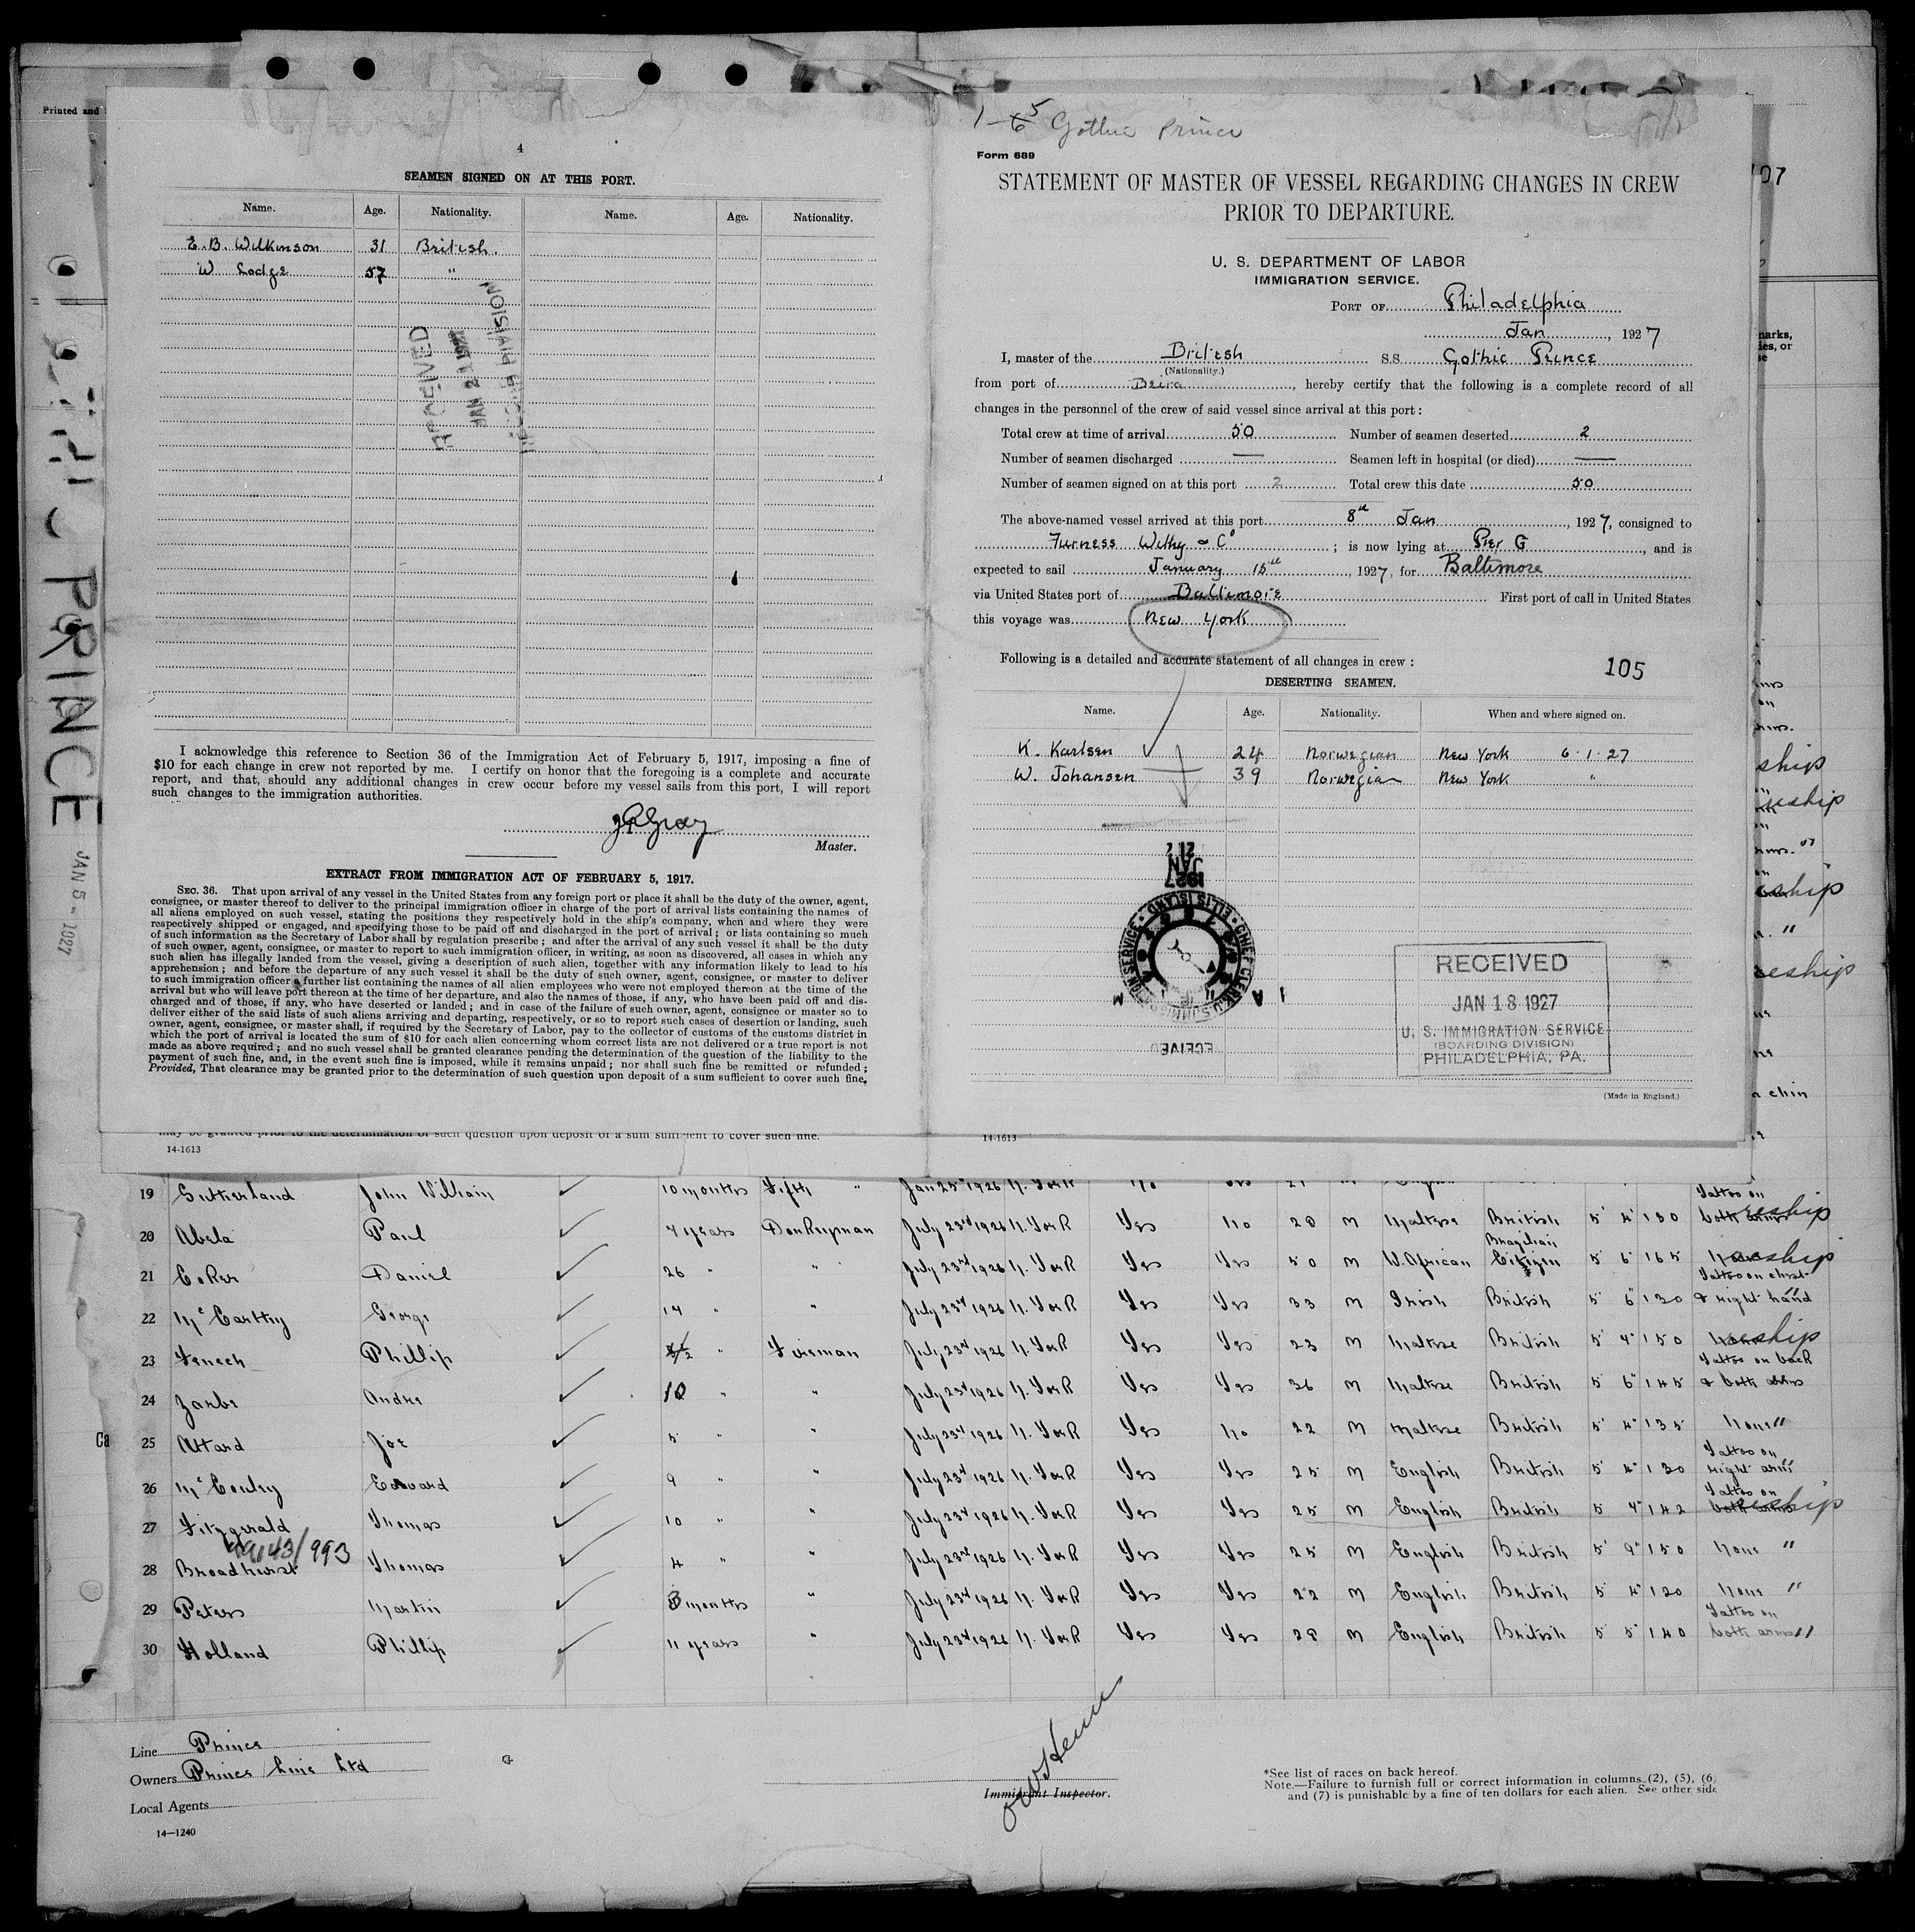 Printed and
4
SEAMEN SIGNED ON AT THIS PORT.
Name. Age. Nationality. Name. Age. Nationality.
E. B. Wilkinson 31 British.
W Lodge 57 "
RECEIVED
JAN 21 1927
DIVISION
I acknowledge this reference to Section 36 of the Immigration Act of February 5, 1917, imposing a fine of
$10 for each change in crew not reported by me. I certify on honor that the foregoing is a complete and accurate
report, and that, should any additional changes in crew occur before my vessel sails from this port, I will report
such changes to the immigration authorities.
Gray
Master.
EXTRACT FROM IMMIGRATION ACT OF FEBRUARY 5, 1917.
SEC. 36. That upon arrival of any vessel in the United States from any foreign port or place it shall be the duty of the owner, agent,
consignee, or master thereof to deliver to the principal immigration officer in charge of the port of arrival lists containing the names of
all aliens employed on such vessel, stating the positions they respectively hold in the ship's company, when and where they were
respectively shipped or engaged, and specifying those to be paid off and discharged in the port of arrival; or lists containing so much
of such information as the Secretary of Labor shall by regulation prescribe; and after the arrival of any such vessel it shall be the duty
of such owner, agent, consignee, or master to report to such immigration officer, in writing, as soon as discovered, all cases in which any
such alien has illegally landed from the vessel, giving a description of such alien, together with any information likely to lead to his
apprehension; and before the departure of any such vessel it shall be the duty of such owner, agent, consignee, or master to deliver
to such immigration officer a further list containing the names of all alien employees who were not employed thereon at the time of the
arrival but who will leave port thereon at the time of her departure, and also the names of those, if any, who have been paid off and dis-
charged and of those, if any, who have deserted or landed; and in case of the failure of such owner, agent, consignee or master so to
deliver either of the said lists of such aliens arriving and departing, respectively, or so to report such cases of desertion or landing, such
owner, agent, consignee, or master shall, if required by the Secretary of Labor, pay to the collector of customs of the customs district in
which the port of arrival is located the sum of $10 for each alien concerning whom correct lists are not delivered or a true report is not
made as above required; and no such vessel shall be granted clearance pending the determination of the question of the liability to the
payment of such fine, and, in the event such fine is imposed, while it remains unpaid; nor shall such fine be remitted or refunded;
Provided, That clearance may be granted prior to the determination of such question upon deposit of a sum sufficient to cover such fine.
PRINCE
JAN 5 - 1927
1-5 Gothic Prince
Form 689
STATEMENT OF MASTER OF VESSEL REGARDING CHANGES IN CREW
PRIOR TO DEPARTURE.
U. S. DEPARTMENT OF LABOR
IMMIGRATION SERVICE.
PORT OF Philadelphia
Jan, 1927
I, master of the British SS Gothic Prince
(Nationality.)
from port of Beira, hereby certify that the following is a complete record of all
changes in the personnel of the crew of said vessel since arrival at this port:
Total crew at time of arrival 50 Number of seamen deserted 2
Number of seamen discharged — Seamen left in hospital (or died) —
Number of seamen signed on at this port 2 Total crew this date 50
The above-named vessel arrived at this port 8th Jan, 1927, consigned to
Furness Withy & Co; is now lying at Pier G, and is
expected to sail January 15th, 1927, for Baltimore
via United States port of Baltimore First port of call in United States
this voyage was New York
Following is a detailed and accurate statement of all changes in crew:
105
DESERTING SEAMEN.
Name. Age. Nationality. When and where signed on.
K. Karlsen 24 Norwegian New York 6.1.27
W. Johansen 39 Norwegian New York "
1927
JAN
21
ELLIS ISLAND
RECEIVED
JAN 18 1927
U. S. IMMIGRATION SERVICE
(BOARDING DIVISION)
PHILADELPHIA, PA.
(Made in England.)
may be granted prior to the determination of such question upon deposit of a sum sufficient to cover such fine.
14-1613 14-1613
19 Sutherland John William 10 months Fifth " Jan 25th 1926 N. York No
20 Abela Paul 7 years Donkeyman July 23rd 1926 N. York Yes No 28 M Maltese British 5' 4" 130 Tattoo on both arms
21 Coker Daniel 26 " " July 23rd 1926 N. York Yes Yes 50 M W. African Brazilian Citizen 5 6" 165
22 McCarthy George 14 " " July 23rd 1926 N. York Yes Yes 33 M Irish British 5' 6" 130 Tattoo on chest & right hand
23 Fenech Phillip " Fireman July 23rd 1926 N. York Yes Yes 23 M Maltese British 5' 4" 150
24 Zarbe Andre 10 " " July 23rd 1926 N. York Yes Yes 36 M Maltese British 5 6" 145 Tattoo on back & both arms
25 Attard Joe 5 " " July 23rd 1926 N. York Yes No 22 M Maltese British 5' 4" 135 None "
26 McConley Edward 9 " " July 23rd 1926 N. York Yes Yes 25 M English British 5' 4" 130 Tattoo on right arm
27 Fitzgerald Thomas 10 " " July 23rd 1926 N. York Yes Yes 25 M English British 5 4" 142 Tattoo on both arms
99143/993
28 Broadhurst Thomas 4 " " July 23rd 1926 N. York Yes Yes 25 M English British 5' 9" 150 None "
29 Peters Martin 3 months " July 23rd 1926 N. York Yes Yes 22 M English British 5' 4" 120 None "
30 Holland Phillip 11 years " July 23rd 1926 N. York Yes Yes 28 M English British 5' 5" 140 Tattoo on both arms "
Line Prince
Owners Prince Line Ltd
Local Agents
14—1240
Immigrant Inspector.
*See list of races on back hereof.
Note.—Failure to furnish full or correct information in columns (2), (5), (6)
and (7) is punishable by a fine of ten dollars for each alien. See other side